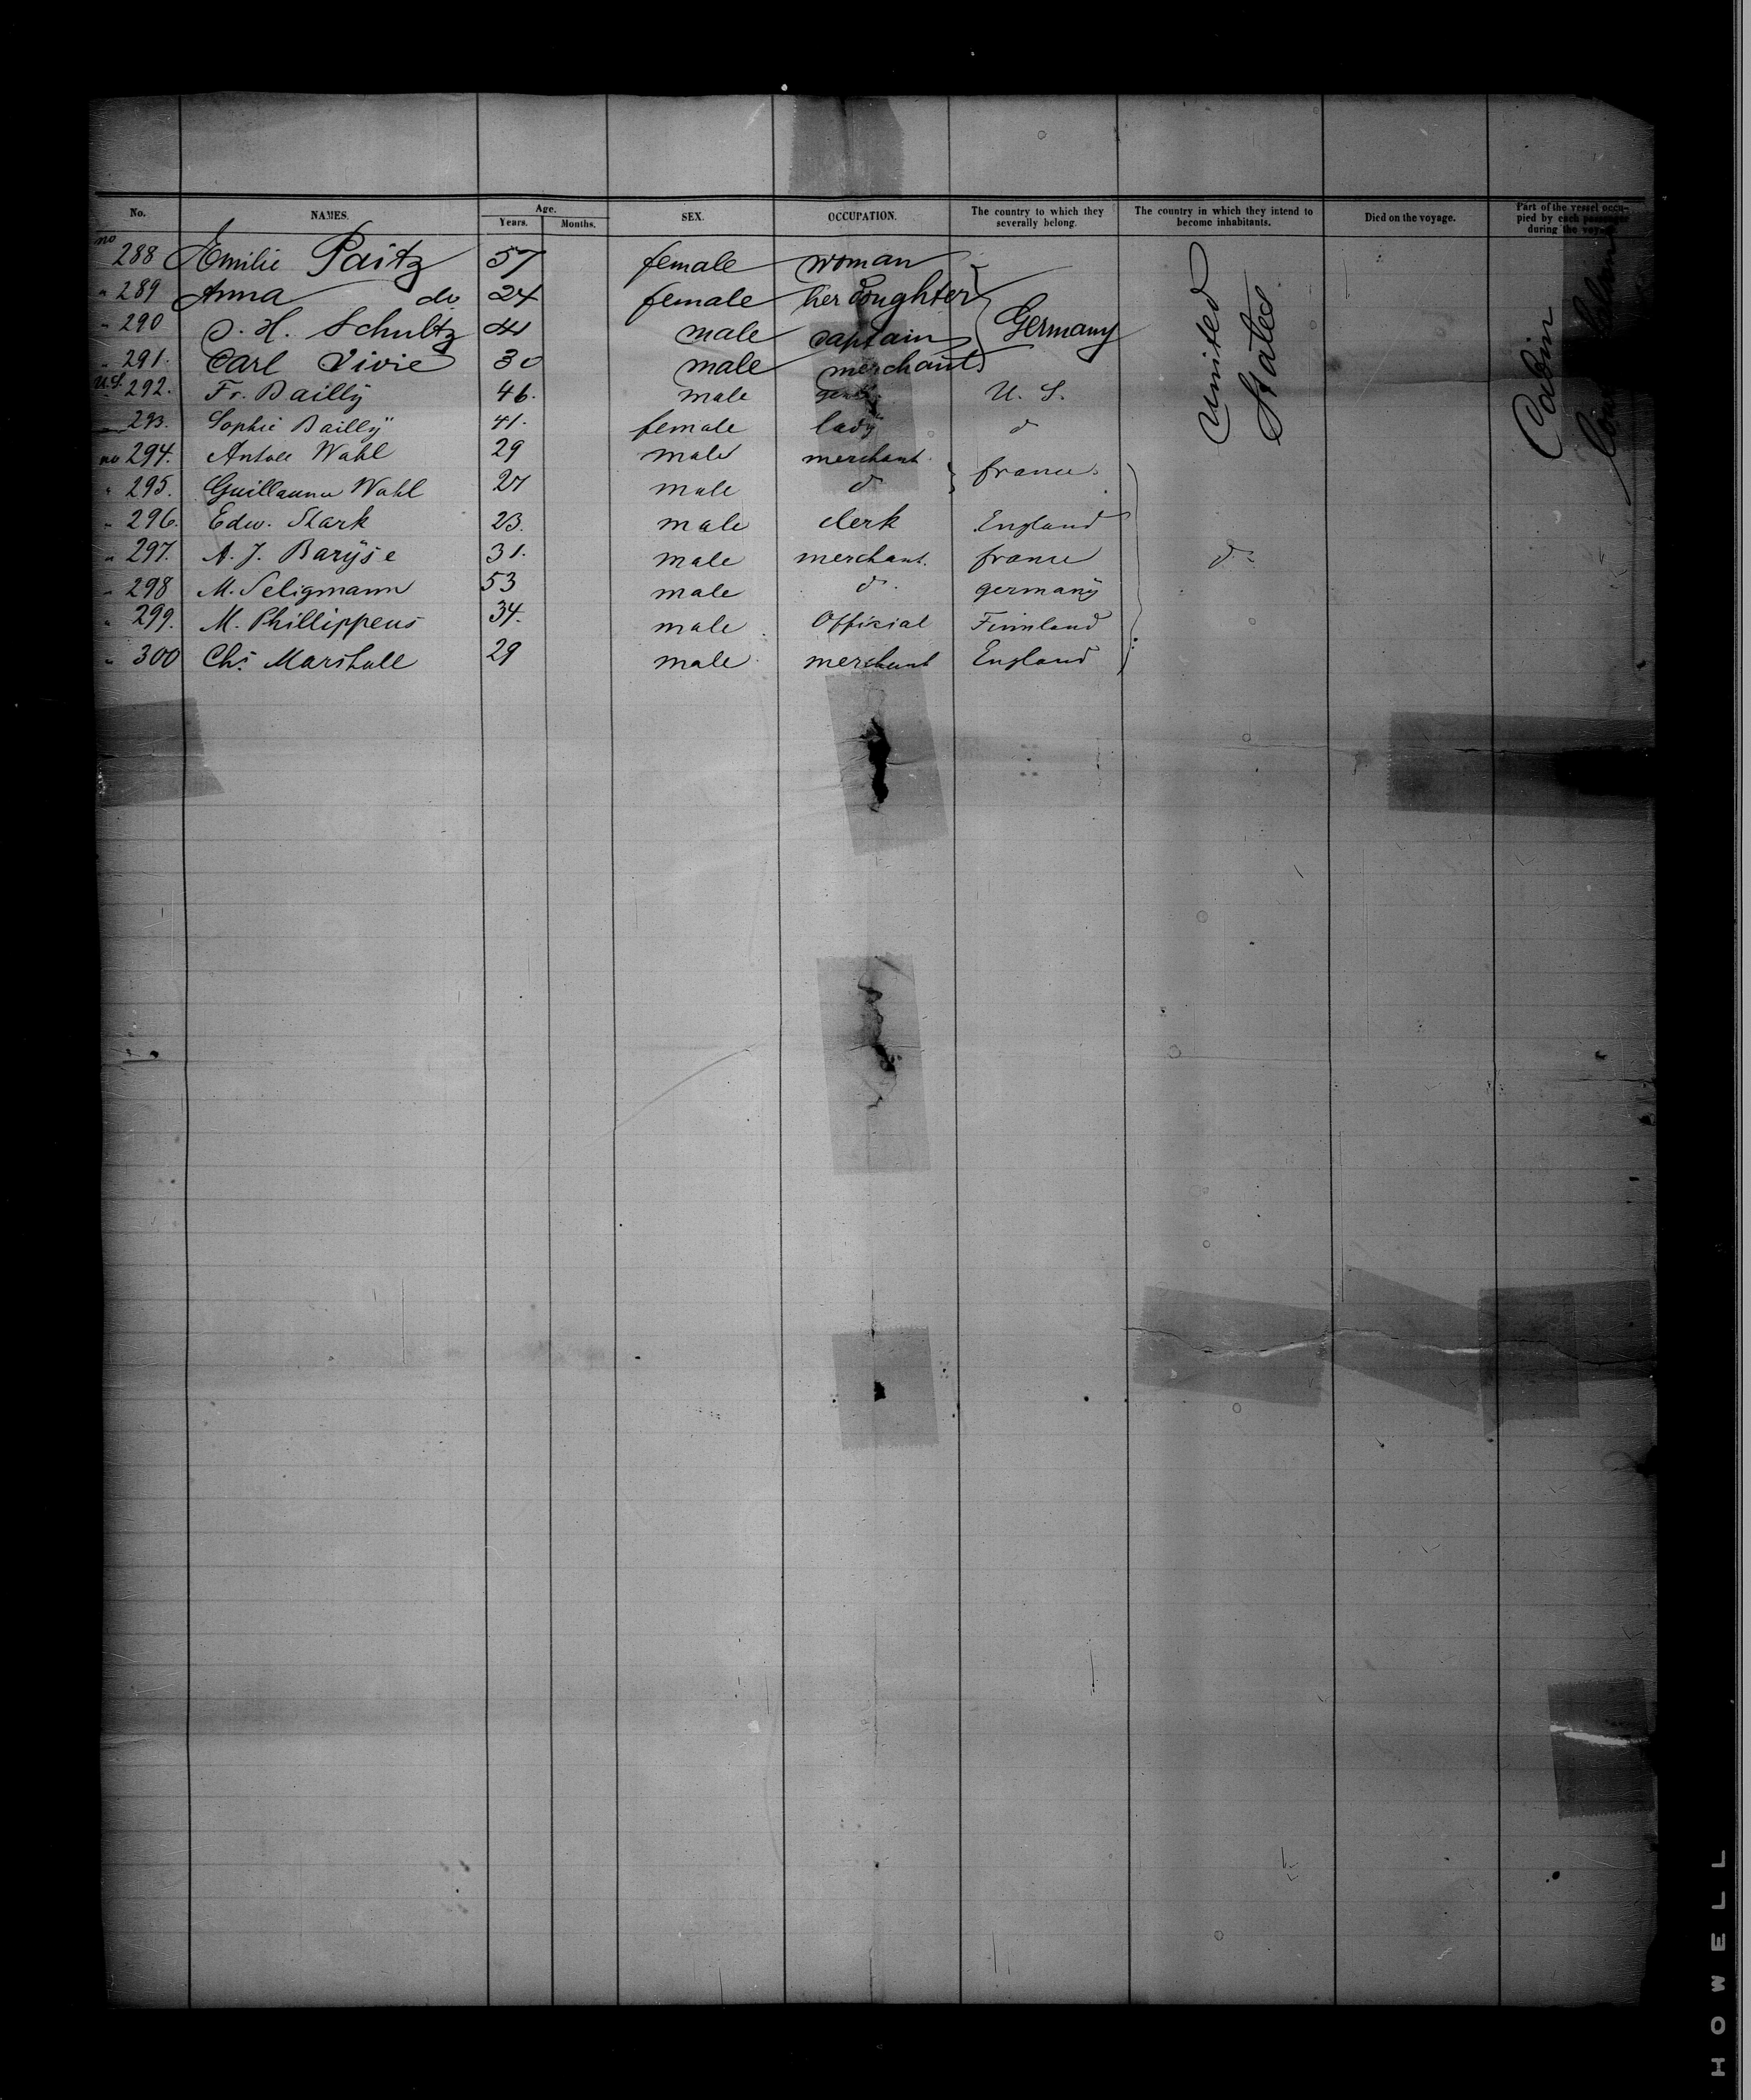 No. NAMES. Age. Years. Months. SEX. OCCUPATION. The country to which they severally belong. The country in which they intend to become inhabitants. Died on the voyage. Part of the vessel occu-pied by each passenger during the voyage.
no 288 Emilie Paitz 57 female woman
" 289 Anna do 24 female her doughter
" 290 H. Schultz male captain Germany
" 291. Carl Vivié 30 male merchant
U.S. 292. Fr. Bailly 46. male U. S.
293. Sophie Bailly 41. female lady d
no 294. Wahl 29 male merchant
" 295. Guillaume Wahl 27 male d france
" 296. Edw. Stark 23. male clerk England
" 297. A. J. Baryse 31. male merchant. france d
" 298 M. Seligmann 53 male d. germany
" 299. M. Phillippeus 34. male Offizial Finnland
" 300 Chs Marshall 29 male merchant England
United States
Cabin
HOWELL